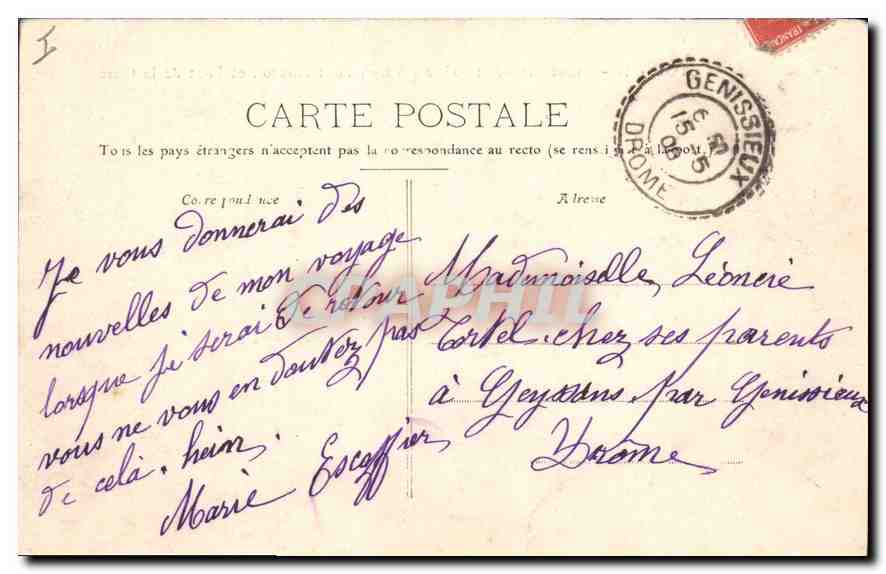 I
FRANÇAIS
CARTE POSTALE
Tous les pays étrangers n'acceptent pas la correspondance au recto (se rens
Correspondance
Adresse
GENISSIEUX
15 5
08
DROME
Je vous donnerai des
nouvelles de mon voyage
lorsque je serai de retour
vous ne vous en doutez pas
de celà. hein.
Marie Escoffier
Mademoiselle Léoncie
Tortel chez ses parents
à Geyssans par Genissieux
Drôme
CPAPHIL